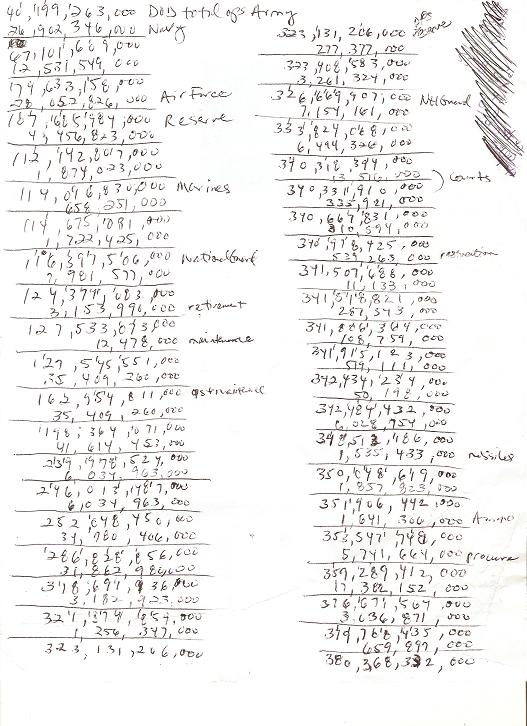 40,199,263,000 DOD total ops Army
26,902,346,000 Navy
67,101,609,000
12,531,549,000
79,633,158,000
28,052,826,000 Air Force
107,685,984,000 Reserve
4,456,823,000
112,142,807,000
1,874,023,000
114,016,830,000 Marines
658,251,000
114,675,081,000
1,722,425,000
116,397,506,000 National Guard
7,981,577,000
124,379,083,000
3,153,990,000 retirement
127,533,073,000
12,478,000 maintenance
127,545,551,000
35,409,260,000
162,954,811,000
35,409,260,000
198,364,071,000
41,614,453,000
239,978,524,000
6,034,963,000
246,013,487,000
6,034,963,000
252,048,450,000
34,780,406,000
286,828,856,000
31,862,980,000
318,691,836,000
3,182,923,000
321,874,859,000
1,256,347,000
323,131,206,000
323,131,206,000
277,377,000
323,408,583,000
3,261,324,000
326,669,907,000 Natl Guard
7,154,161,000
333,824,068,000
6,494,326,000
340,318,394,000
13,516,000
340,331,910,000 Courts
335,921,000
340,667,831,000
310,594,000
340,978,425,000
529,263,000 restoration
341,507,688,000
11,133,000
341,518,821,000
287,543,000
341,806,364,000
108,759,000
341,915,123,000
519,111,000
342,434,234,000
50,198,000
342,484,432,000
6,028,754,000
348,513,186,000
1,535,433,000 missiles
350,048,619,000
1,857,823,000
351,906,442,000
1,641,306,000 Ammo
353,547,748,000
5,741,664,000 procure
359,289,412,000
17,382,152,000
376,671,564,000
3,036,871,000
379,708,435,000
659,897,000
380,368,332,000